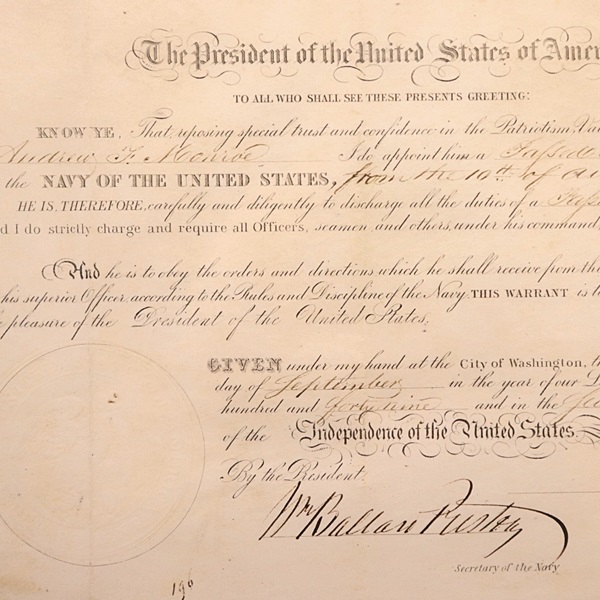 The President of the United States of Amer
TO ALL WHO SHALL SEE THESE PRESENTS GREETING:
KNOW YE, That reposing special trust and confidence in the Patriotism, Va
Andrew F. Monroe I do appoint him a Passed
the NAVY OF THE UNITED STATES, from the 10th of Au
HE IS, THEREFORE, carefully and diligently to discharge all the duties of a Pass
d I do strictly charge and require all Officers, seamen, and others, under his command
And he is to obey the orders and directions, which he shall receive from th
his superior Officer, according to the Rules and Discipline of the Navy. THIS WARRANT is t
e pleasure of the President of the United States.
GIVEN under my hand at the City of Washington, th
day of September in the year of our L
hundred and forty nine and in the
of the Independence of the United States.
By the President.
Wm Ballard Preston
Secretary of the Navy
196